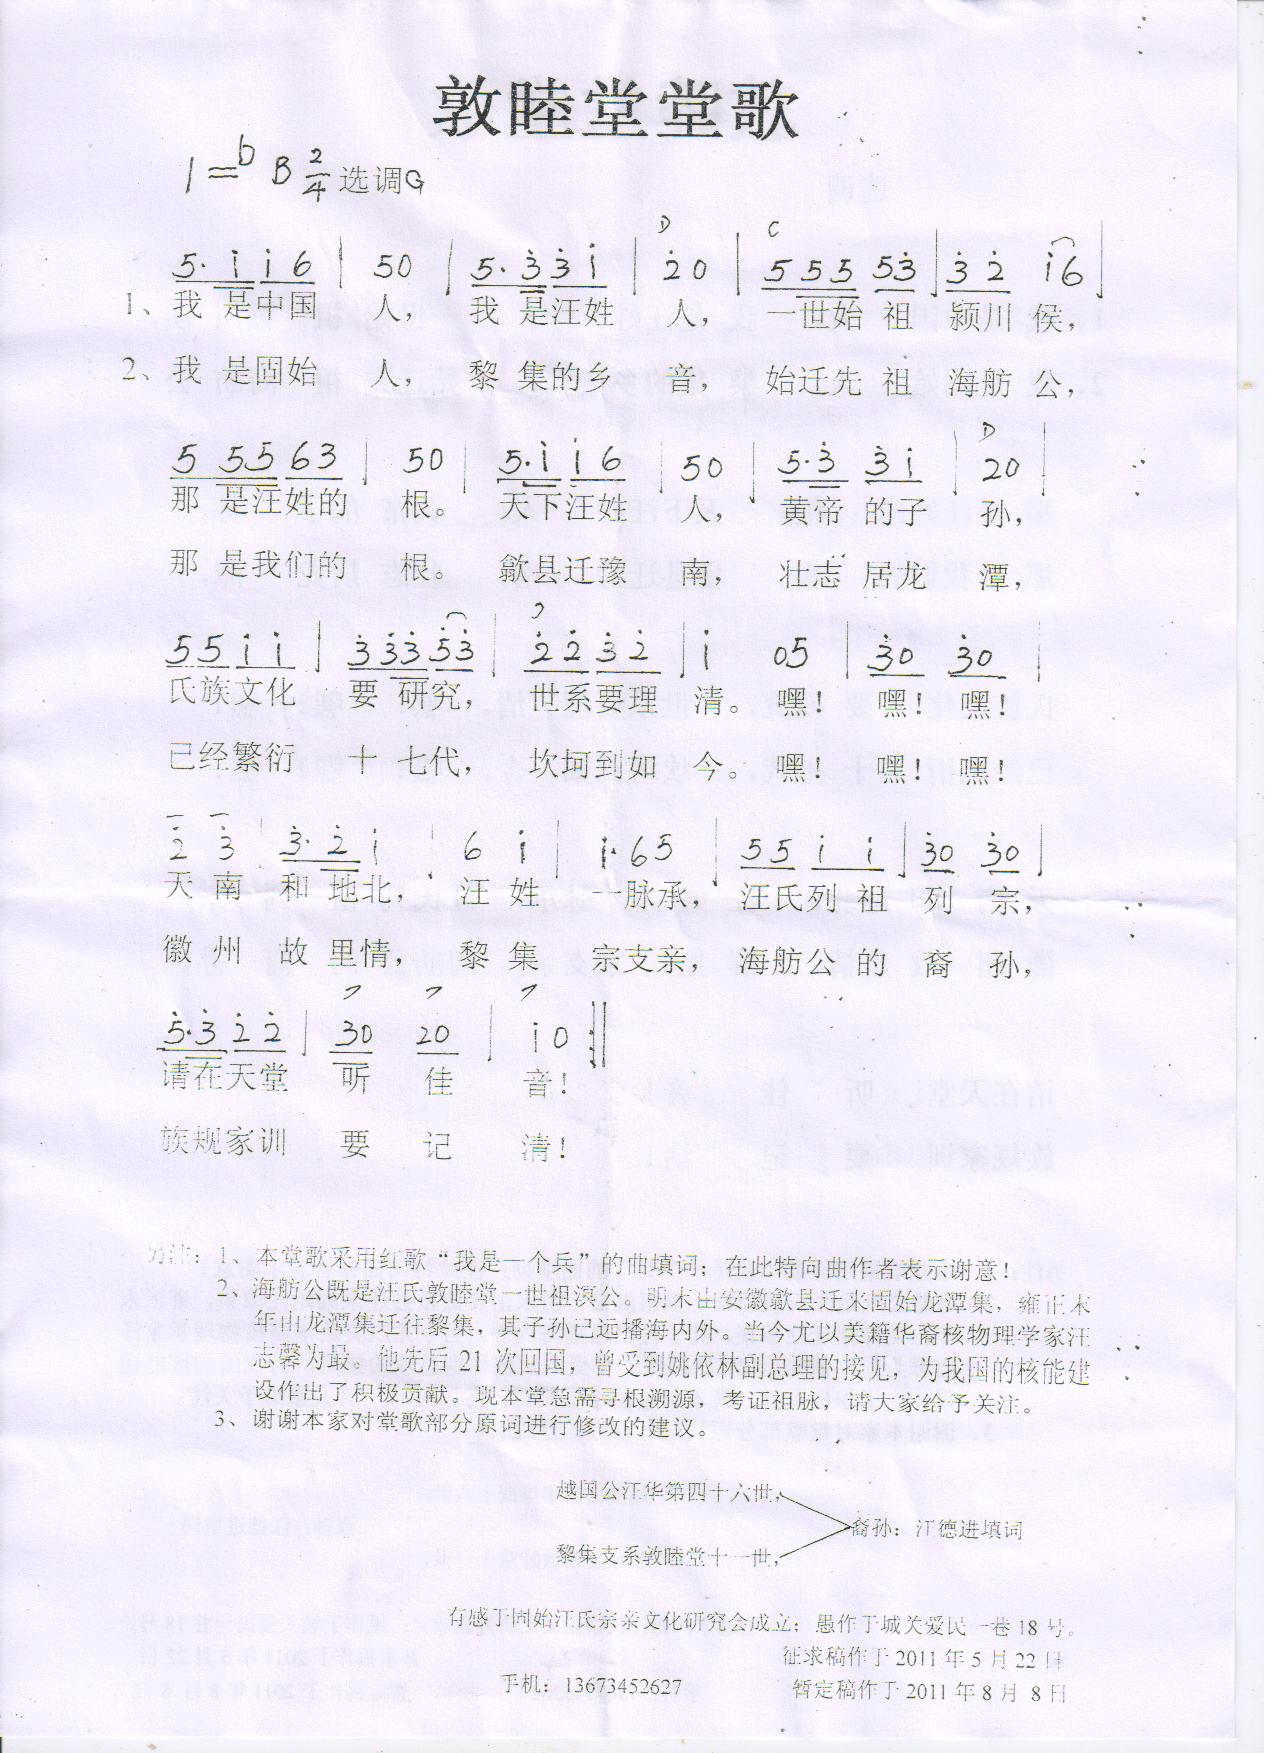 敦睦堂堂歌
1=♭B 2/4 选调G
5· i̇ i̇ 6 | 50 | 5· 3̇ 3̇ i̇ | 2̇0 | 5 5 5 5 3̇ | 3̇ 2̇ i̇6 |
D C
1、我是中国 人, 我是汪姓 人, 一世始祖 颍川侯,
2、我是固始 人, 黎集的乡 音, 始迁先祖 海舫公,
5 5563 | 50 | 5·i̇ i̇6 | 50 | 5·3̇ 3̇i̇ | 20 |
D
那是汪姓的 根。 天下汪姓 人, 黄帝的子 孙,
那是我们的 根。 歙县迁豫 南, 壮志居龙 潭,
55i̇ i̇ | 3̇3̇3̇5̇3̇ | 2̇2̇3̇2̇ | i̇ 05 | 3̇0 3̇0 |
氏族文化 要研究, 世系要理 清。嘿! 嘿! 嘿!
已经繁衍 十七代, 坎坷到如 今。嘿! 嘿! 嘿!
2̇ 3̇ | 3̇·2̇ i̇ | 6 i̇ | i̇·65 | 55 i̇ i̇ | 3̇0 3̇0 |
天南 和地北, 汪姓 一脉承, 汪氏列祖 列宗,
徽州 故里情, 黎集 宗支亲, 海舫公的 裔孙,
5̇·3̇ 2̇2̇ | 30 20 | i̇ 0 :||
请在天堂 听佳 音!
族规家训 要记 清!
另注: 1、本堂歌采用红歌“我是一个兵”的曲填词; 在此特向曲作者表示谢意!
2、海舫公既是汪氏敦睦堂一世祖溟公。明末由安徽歙县迁来固始龙潭集, 雍正末
年由龙潭集迁往黎集, 其子孙已远播海内外。当今尤以美籍华裔核物理学家汪
志馨为最。他先后 21 次回国, 曾受到姚依林副总理的接见, 为我国的核能建
设作出了积极贡献。现本堂急需寻根溯源, 考证祖脉, 请大家给予关注。
3、谢谢本家对堂歌部分原词进行修改的建议。
越国公汪华第四十六世,
裔孙: 汪德进填词
黎集支系敦睦堂十一世,
有感于固始汪氏宗亲文化研究会成立; 愚作于城关爱民一巷 18 号。
征求稿作于 2011 年 5 月 22 日
手机: 13673452627 暂定稿作于 2011 年 8 月 8 日